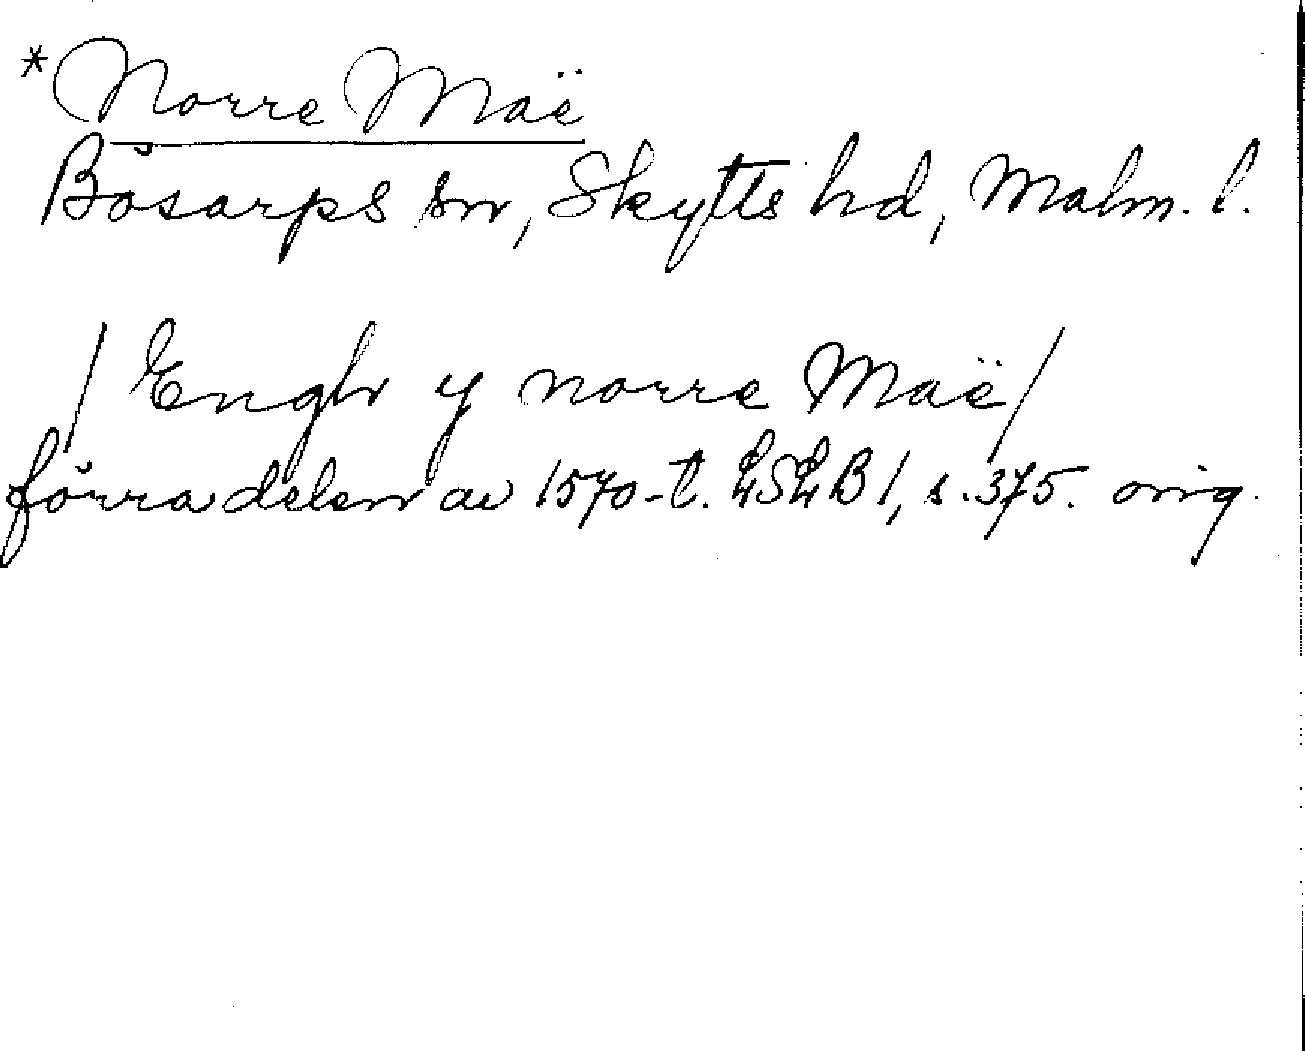 *Norre Maë
Bösarps sn, Skytts hd, Malm. l.
/Engh y norre Maë/
förra delen av 1570-t. LSLB 1, s. 375. orig.